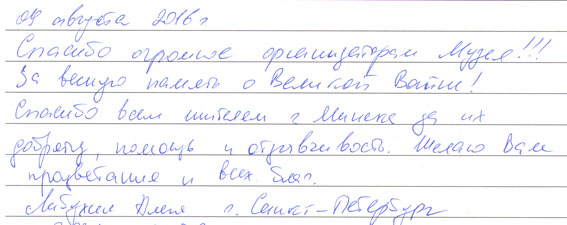 09 августа 2016 г
Спасибо огромное организаторам Музея!!!
За вечную память о Великой Войне!
Спасибо всем жителям г Минска за их
доброту, помощь и отзывчивость. Желаю Вам
процветания и всех благ.
г. Санкт-Петербург